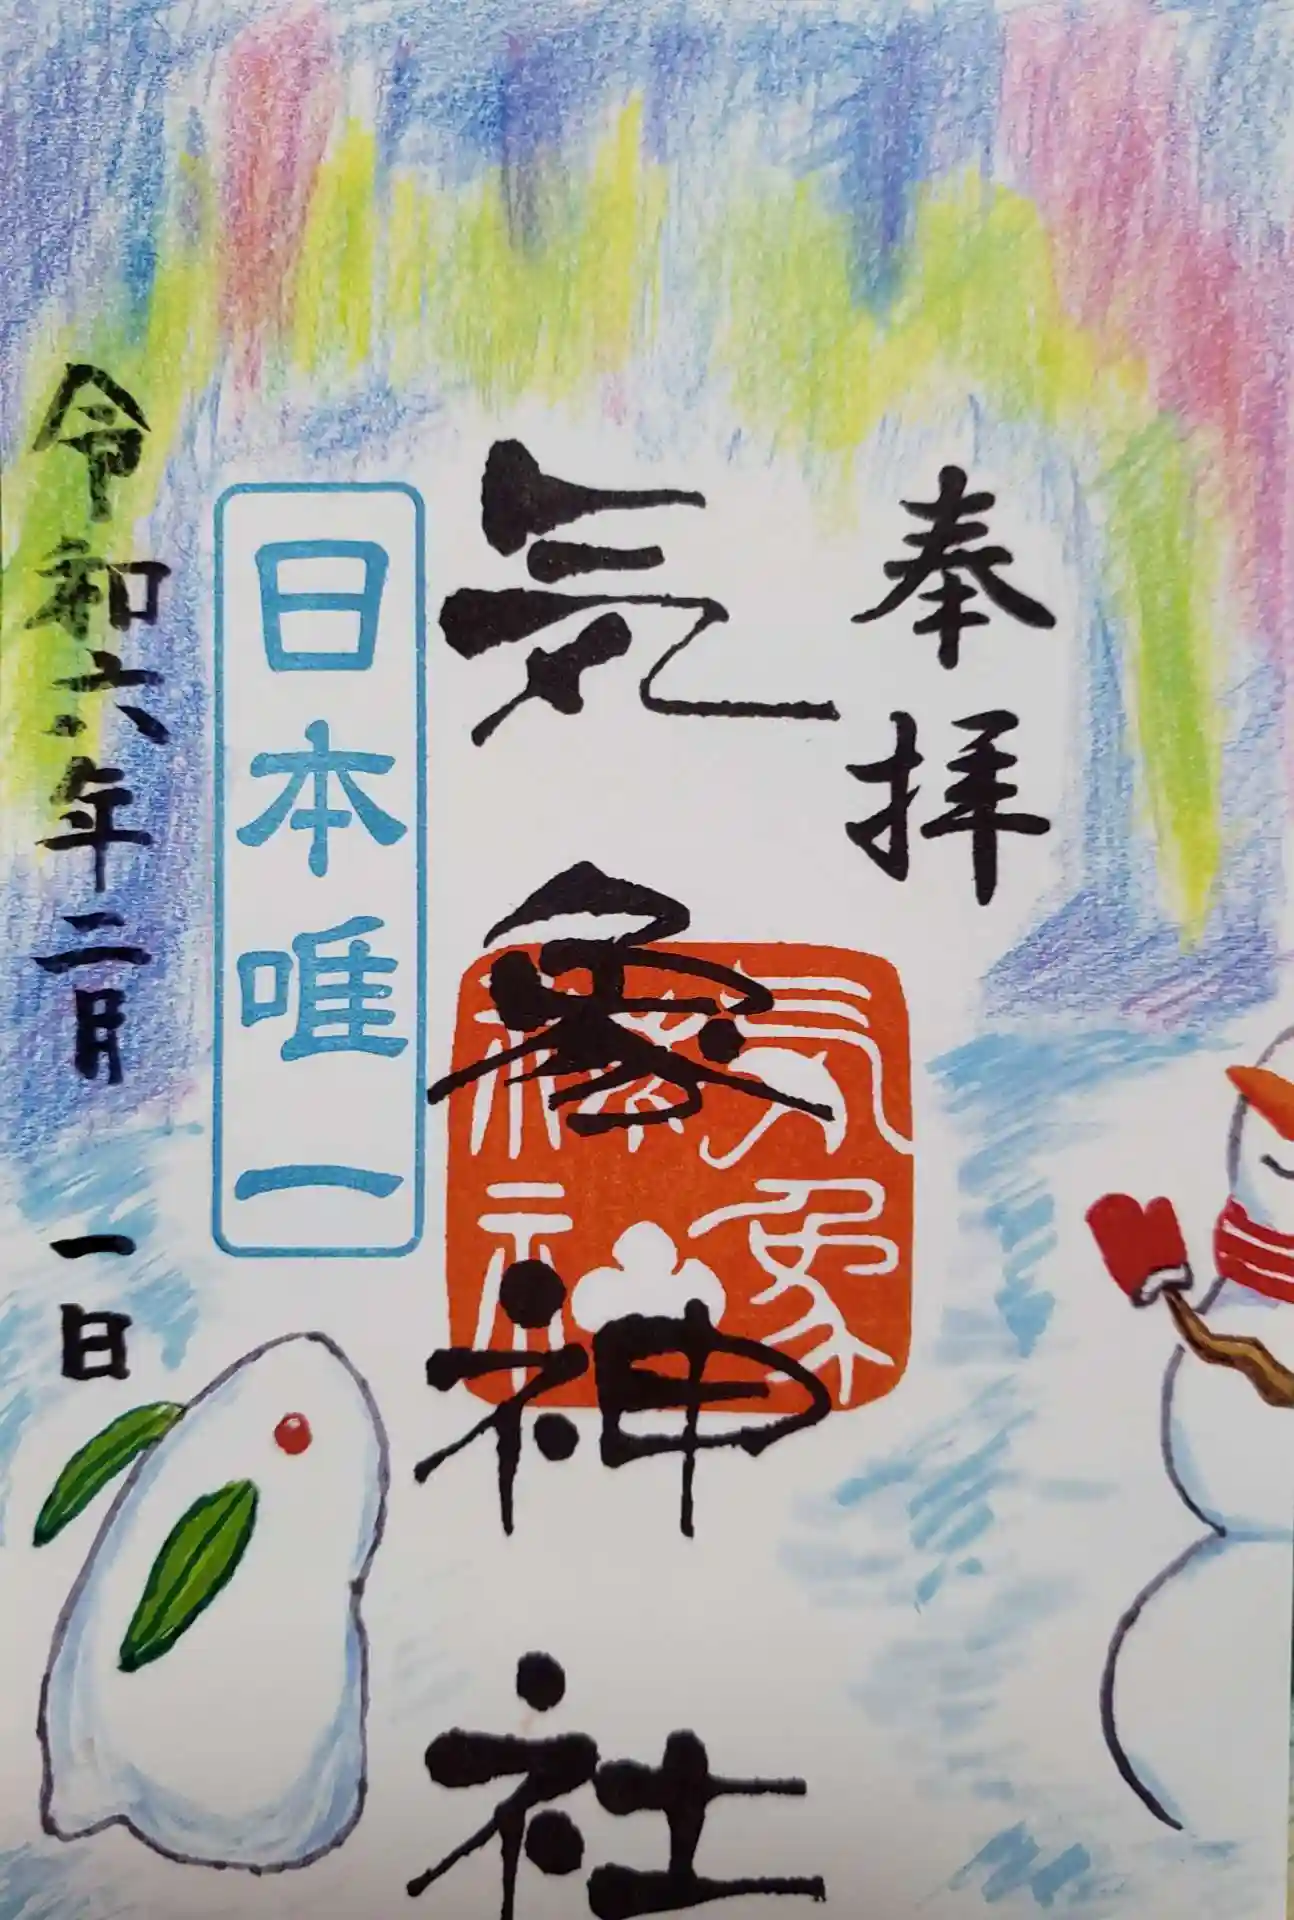 奉拝
気象神社
気象神社
日本唯一
令和六年二月一日